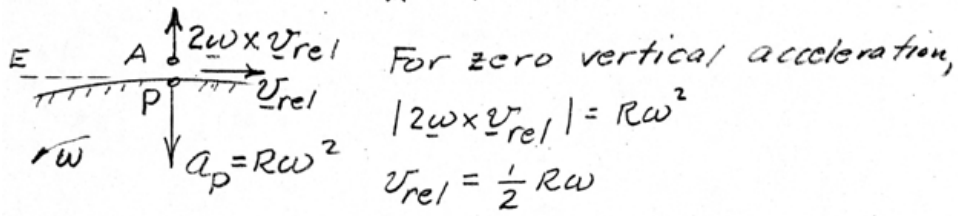 2ω × v_rel
E A
v_rel
P
ω
a_p = Rω²
For zero vertical acceleration,
|2ω × v_rel| = Rω²
v_rel = ½ Rω